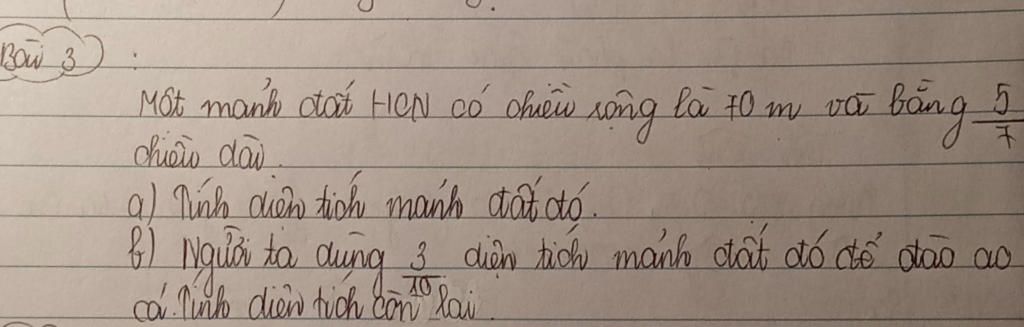 Bài 3 :
Một mảnh đất HCN có chiều rộng là 70 m và bằng 5/7
chiều dài.
a) Tính diện tích mảnh đất đó.
b) Người ta dùng 3/10 diện tích mảnh đất đó để đào ao
cá. Tính diện tích còn lại.